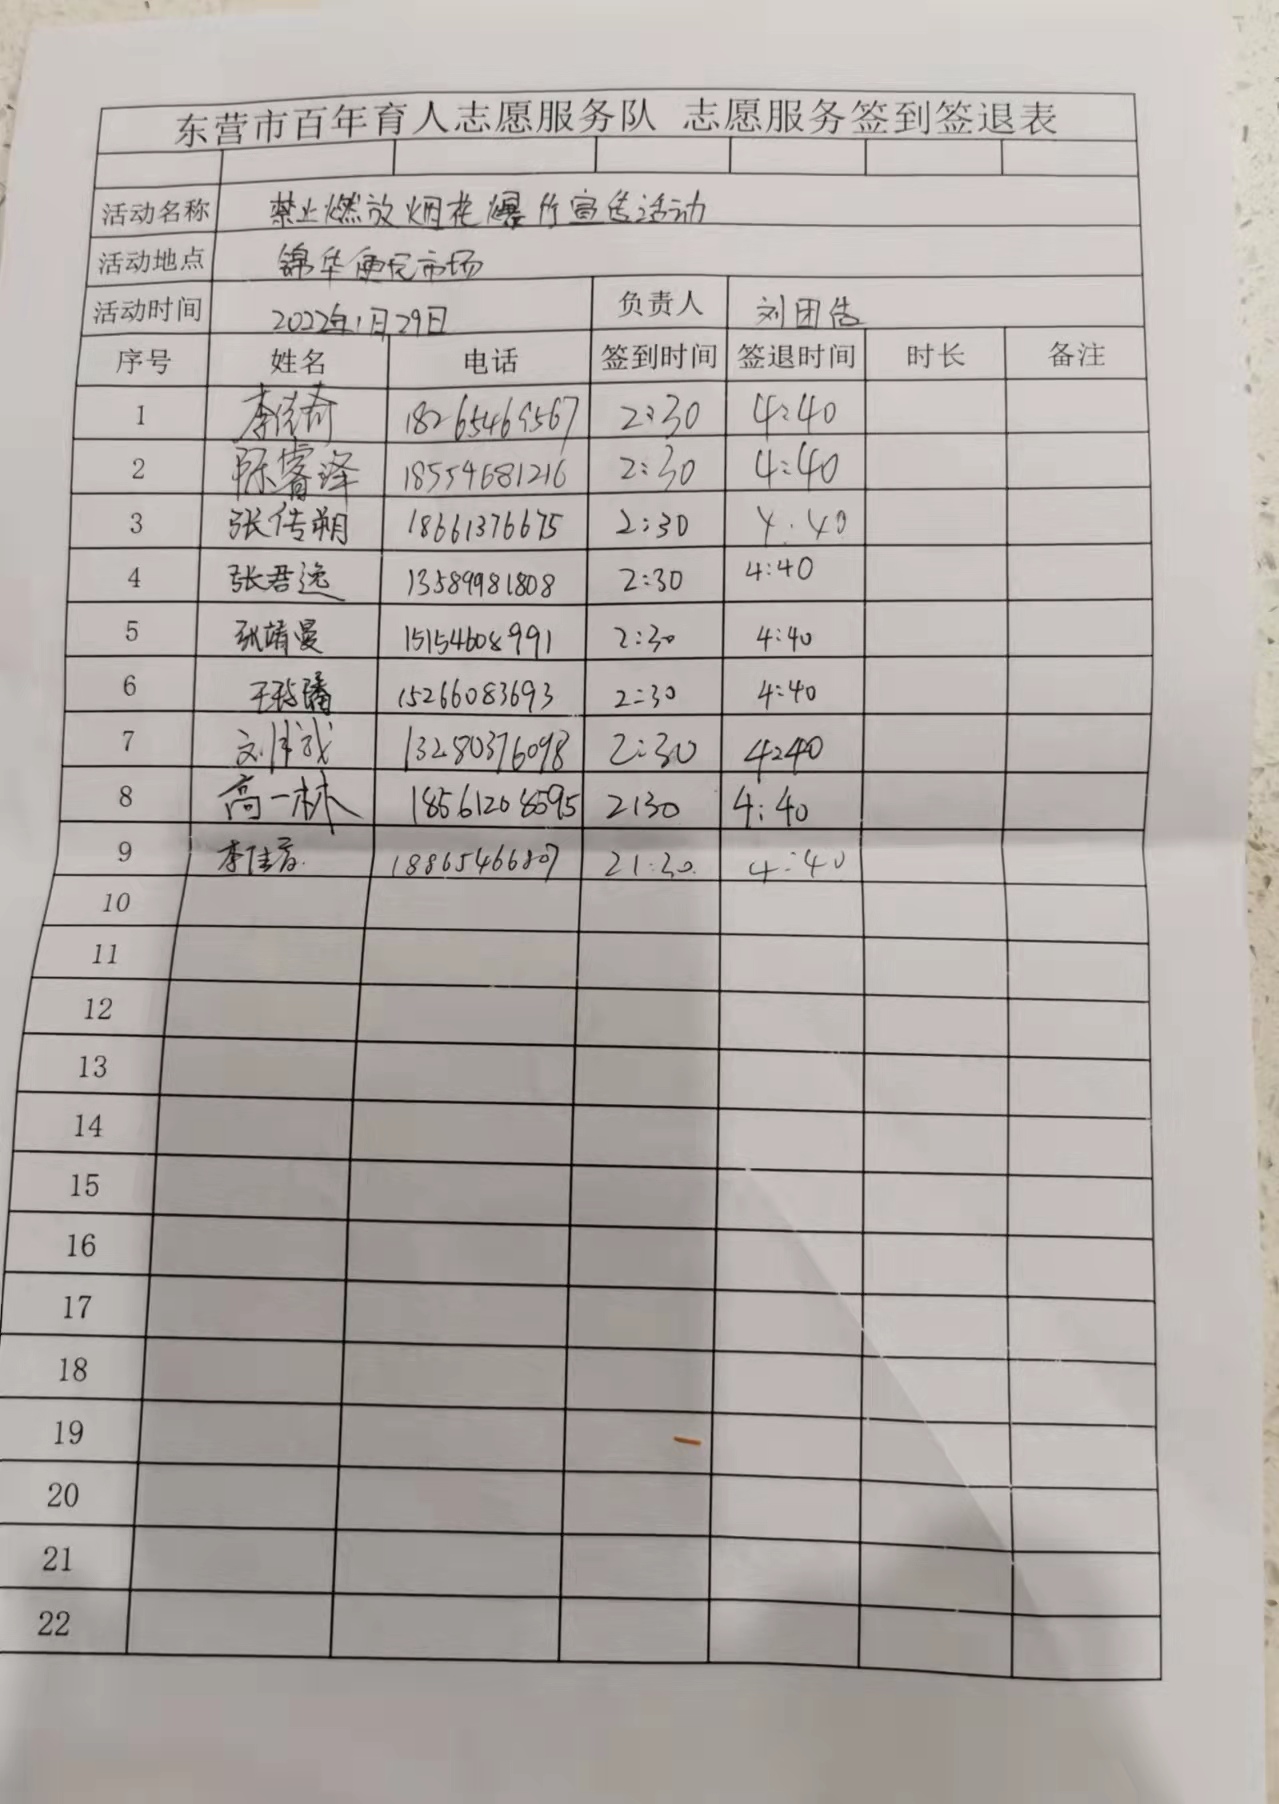 东营市百年育人志愿服务队 志愿服务签到签退表
活动名称 禁止燃放烟花爆竹宣传活动
活动地点 锦华便民市场
活动时间 2022年1月29日 负责人 刘团浩
序号 姓名 电话 签到时间 签退时间 时长 备注
1 18265469567 2:30 4:40
2 陈睿泽 18554681216 2:30 4:40
3 张传朔 18661376675 2:30 4:40
4 张君逸 13589981808 2:30 4:40
5 张靖曼 15154608991 2:30 4:40
6 15266083693 2:30 4:40
7 13280376098 2:30 4:40
8 高一林 18561208595 2:30 4:40
9 18865466807 21:30 4:40
10
11
12
13
14
15
16
17
18
19
20
21
22